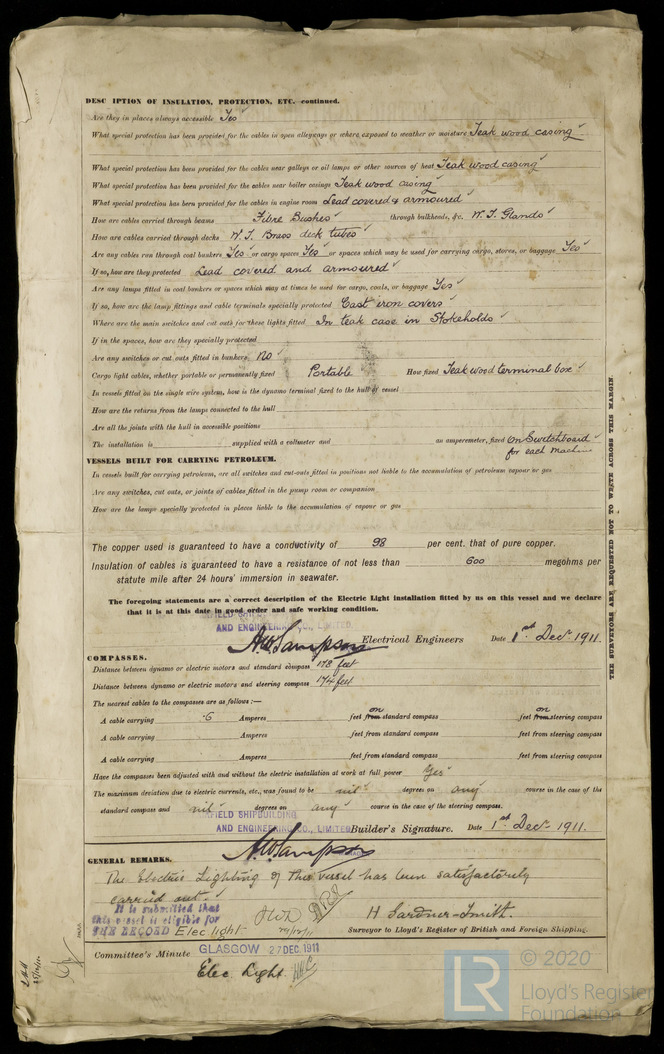 DESC IPTION OF INSULATION, PROTECTION, ETC.—continued.
Are they in places always accessible Yes
What special protection has been provided for the cables in open alleyways or where exposed to weather or moisture Teak wood casing
What special protection has been provided for the cables near galleys or oil lamps or other sources of heat Teak wood casing
What special protection has been provided for the cables near boiler casings Teak wood casing
What special protection has been provided for the cables in engine room Lead covered & armoured
How are cables carried through beams Fibre Bushes through bulkheads, &c. W.T. Glands
How are cables carried through decks W.T. Brass deck tubes
Are any cables run through coal bunkers Yes or cargo spaces Yes or spaces which may be used for carrying cargo, stores, or baggage Yes
If so, how are they protected Lead covered and armoured
Are any lamps fitted in coal bunkers or spaces which may at times be used for cargo, coals, or baggage Yes
If so, how are the lamp fittings and cable terminals specially protected Cast iron covers
Where are the main switches and cut outs for these lights fitted In teak case in Stokeholds
If in the spaces, how are they specially protected
Are any switches or cut outs fitted in bunkers No
Cargo light cables, whether portable or permanently fixed Portable How fixed Teak wood terminal box
In vessels fitted on the single wire system, how is the dynamo terminal fixed to the hull of vessel
How are the returns from the lamps connected to the hull
Are all the joints with the hull in accessible positions
The installation is supplied with a voltmeter and an amperemeter, fixed On Switchboard
for each machine
VESSELS BUILT FOR CARRYING PETROLEUM.
In vessels built for carrying petroleum, are all switches and cut-outs fitted in positions not liable to the accumulation of petroleum vapour or gas
Are any switches, cut outs, or joints of cables fitted in the pump room or companion
How are the lamps specially protected in places liable to the accumulation of vapour or gas
THE SURVEYORS ARE REQUESTED NOT TO WRITE ACROSS THIS MARGIN
The copper used is guaranteed to have a conductivity of 98 per cent. that of pure copper.
Insulation of cables is guaranteed to have a resistance of not less than 600 megohms per
statute mile after 24 hours' immersion in seawater.
The foregoing statements are a correct description of the Electric Light installation fitted by us on this vessel and we declare
that it is at this date in good order and safe working condition.
AND ENGINEERING CO., LIMITED.
A.W. Sampson Electrical Engineers Date 1st Decr 1911
COMPASSES.
Distance between dynamo or electric motors and standard compass 178 feet
Distance between dynamo or electric motors and steering compass 174 feet
The nearest cables to the compasses are as follows:—
A cable carrying .6 Amperes feet from on standard compass feet from on steering compass
A cable carrying Amperes feet from standard compass feet from steering compass
A cable carrying Amperes feet from standard compass feet from steering compass
Have the compasses been adjusted with and without the electric installation at work at full power Yes
The maximum deviation due to electric currents, etc., was found to be nil degrees on any course in the case of the
standard compass and nil degrees on any course in the case of the steering compass.
FIELD SHIPBUILDING
AND ENGINEERING CO., LIMITED Builder's Signature. Date 1st Decr 1911.
A.W. Sampson
GENERAL REMARKS.
The Electric Lighting of this vessel has been satisfactorily
carried out.
It is submitted that
this vessel is eligible for
THE RECORD Elec light
H Gardner-Smith.
Surveyor to Lloyd's Register of British and Foreign Shipping.
Committee's Minute GLASGOW 27 DEC. 1911
Elec. Light
© 2020
LR
Lloyd's Register
Foundation